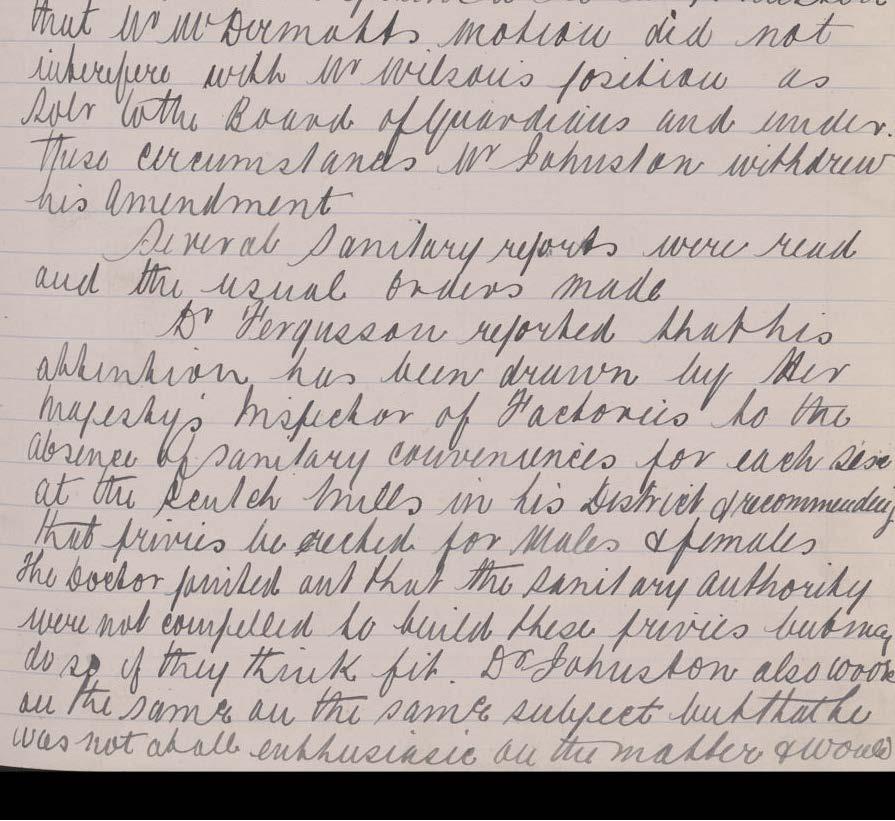 that Mr McDermotts motion did not
interefere with Mr Wilson's position as
Solr to the Board of Guardians and under
these circumstances Mr Johnston withdrew
his amendment
Several Sanitary reports were read
and the usual orders made
Dr Fergusson reported that his
attention has been drawn by Her
Majesty's Inspector of Factories to the
absence of sanitary conveniences for each sex
at the Scutch Mills in his District & recommending
that privies be erected for Males & females
The Doctor pointed out that the sanitary authority
were not compelled to build these privies but may
do so if they think fit. Dr Johnston also
on the same on the same subject but that he
was not at all enthusiasic on the matter & would